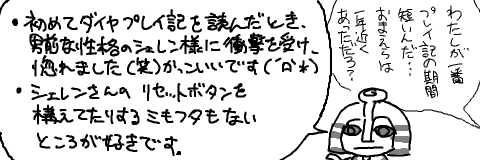 ・初めてダイヤプレイ記を読んだとき、
男前な性格のシェレン様に衝撃を受け、
惚れました(笑)かっこいいです(´Д`*)
・シェレンさんの リセットボタンを
構えてたりするミモフタもない
ところが好きです。
わたしが一番
プレイ記の期間
短いんだ…
おまえらは
一年近く
あっただろ?